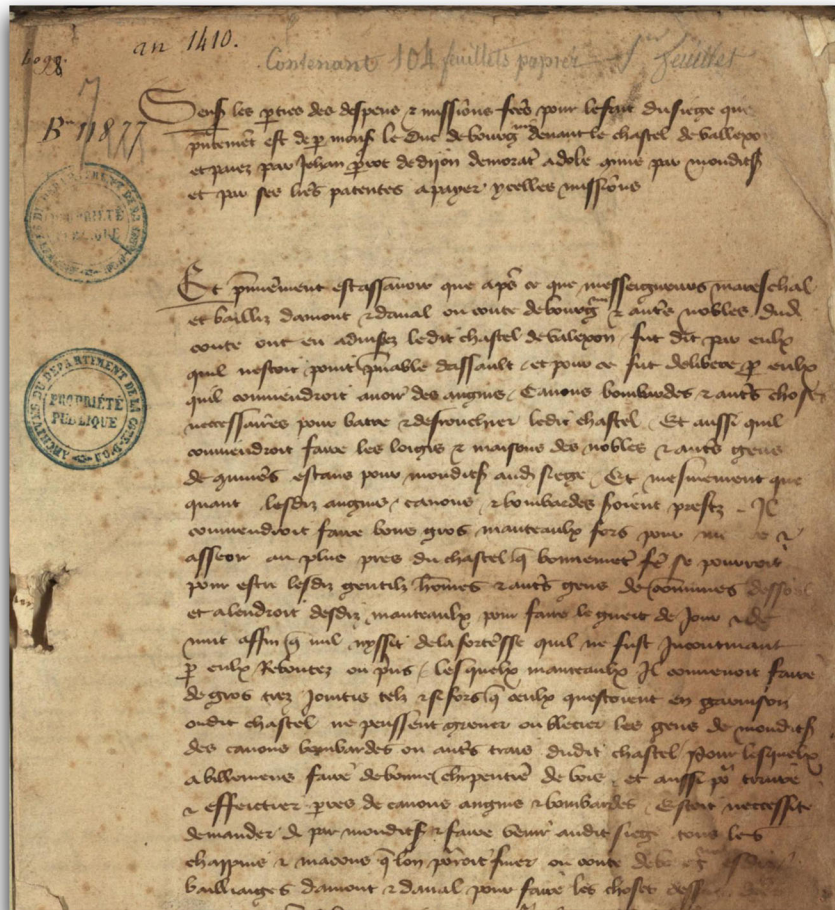 an 1410.
4098.
Contenant 104 feuillets papier 1er feuillet
B 11877
ARCHIVES DU DEPARTEMENT DE LA COTE-D'OR
PROPRIÉTÉ
PUBLIQUE
Sens les pties des despens & missions fees pour lefait dusiege que
pntement est de p mons le Duc de bourg devant le chastel de vallexon
et paiez par Jehan prot de dijon demorat a dole par mondits
et par ses lres patentes apaier ycelles missions
Et pmierement estassavoir que aps ce que messeigneurs mareschal
et bailliz damont & daval ou conte de bourg & autrs nobles dud
conte ont eu advisez ledit chastel de valexon fut dit par eulx
quil nestoit point pnable dassault et pour ce fut delibere p eulx
quil conviendroit avoir des angins Canons bombardes & autrs choses
necessaires pour batre & desrouchier ledit chastel Et aussi quil
conviendroit faire les loigis & maisons des nobles & autrs gens
de estans pour mondits aud siege Et mesmement que
quant lesdiz angins canons & bombardes soient prestz Il
conviendroit faire bons gros manteaulx fors pour &
asseoir au plus pres du chastel q bonnemet se pourroit
pour estre lesdiz gentilz homes & autrs gens de comunes
et alendroit desdiz manteaulx pour faire le gueit de Jour & de
nuit affin q nul nyssit dela fortesse quil ne fust Incontinant
p eulx Reboutez ou pns lesquelx manteaulx Il convenoit faire
de gros trez Jointis telz & si fors q ceulx questoient en garnison
oudit chastel ne peussent grever ou blecier les gens de mondits
des canons bombardes ou autrs trais dudit chastel Pour lesquelx
abillemens faire de bonne chrpentier de bois et aussi po
& effeictier pres de canons angins & bombardes Estoit neccessite
demander de par mondits & faire venir audit siege tous les
chappuis & macons q lon porroit finer ou conte de
bailliaiges damont & daval pour faire les choses